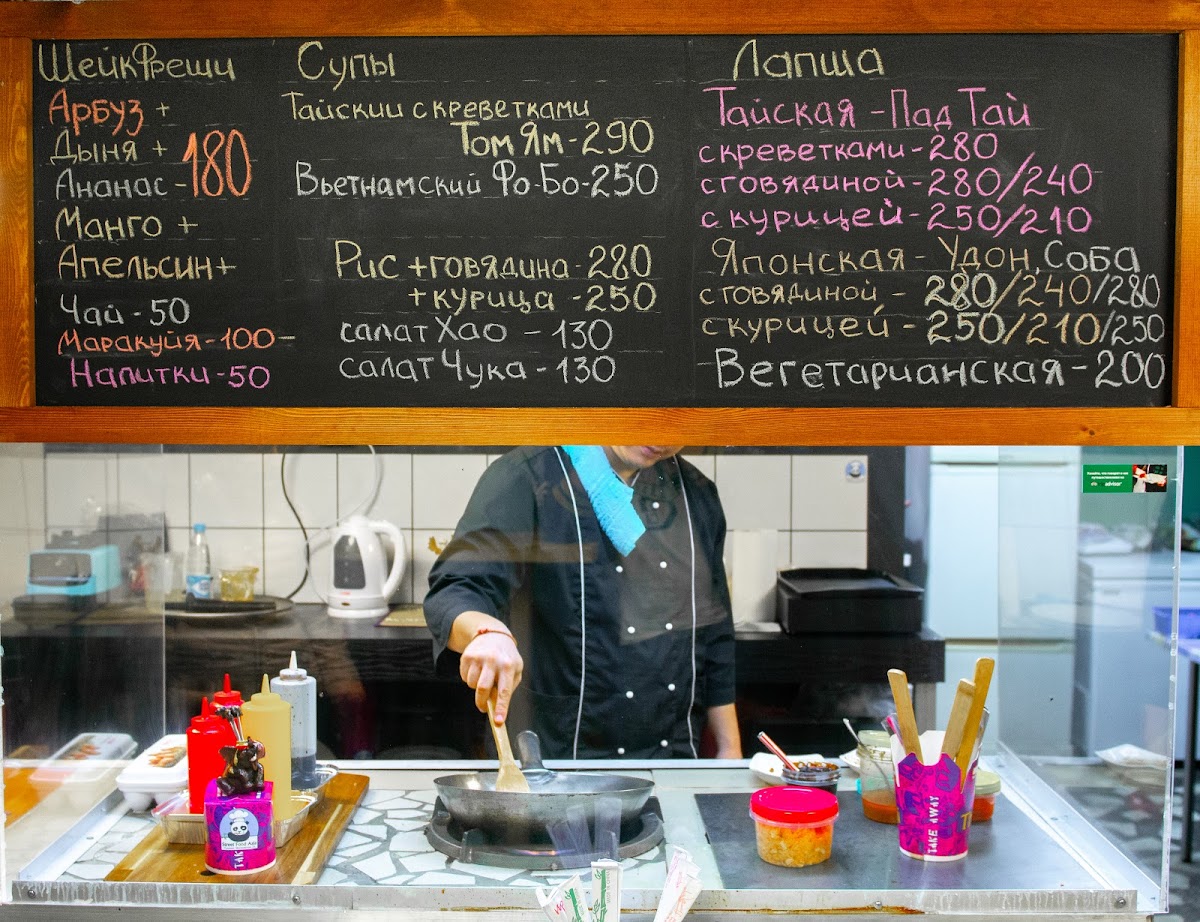 ШейкФреши
Арбуз +
Дыня + 180
Ананас -
Манго +
Апельсин+
Чай - 50
Маракуйя - 100 -
Напитки - 50
Супы
Тайскии с креветками
Том Ям - 290
Вьетнамский Фо-Бо - 250
Рис + говядина - 280
+ курица - 250
салат Хао - 130
салат Чука - 130
Лапша
Тайская - Пад Тай
с креветками - 280
с говядиной - 280/240
с курицей - 250/210
Японская - Удон, Соба
с говядиной - 280/240/280
с курицей - 250/210/250
Вегетарианская - 200
advisor
Street Food Asia
TAK
TAKE AWAY
T